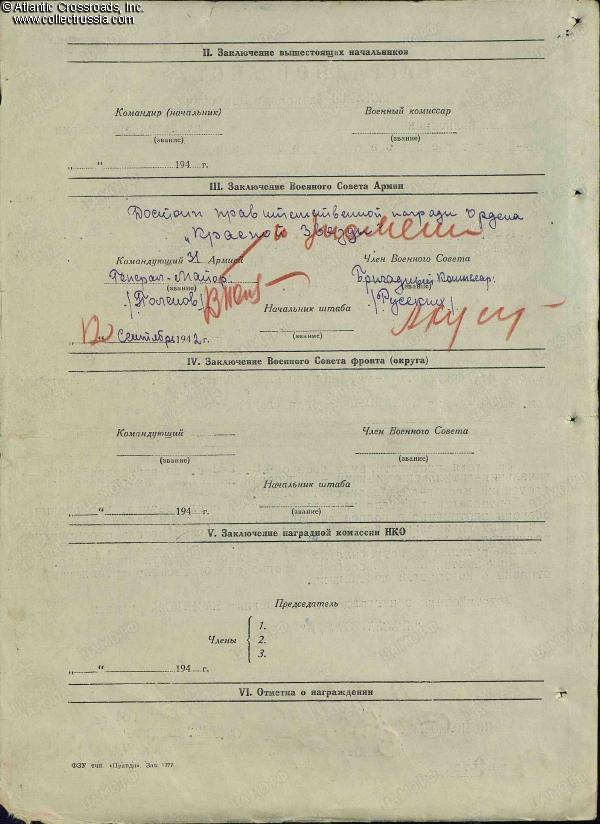 © Atlantic Crossroads, Inc.
www.collectrussia.com
II. Заключение вышестоящих начальников
Командир (начальник) Военный комиссар
(звание) (звание)
„ “ 194 г.
III. Заключение Военного Совета Армии
Достоин правительственной награды Ордена
„Красной Звезды"
Командующий 31 Армией Член Военного Совета
Генерал-Майор Бригадный Комиссар
(звание)
/Поленов/ /Русских/
Начальник штаба
(звание)
„ “ Сентября 1942 г.
IV. Заключение Военного Совета фронта (округа)
Командующий Член Военного Совета
(звание) (звание)
Начальник штаба
(звание)
„ “ 194 г.
V. Заключение наградной комиссии НКО
Председатель
Члены { 1.
2.
3.
„ “ 194 г.
VI. Отметка о награждении
ФЗУ тип. «Правда». Зак 1277.